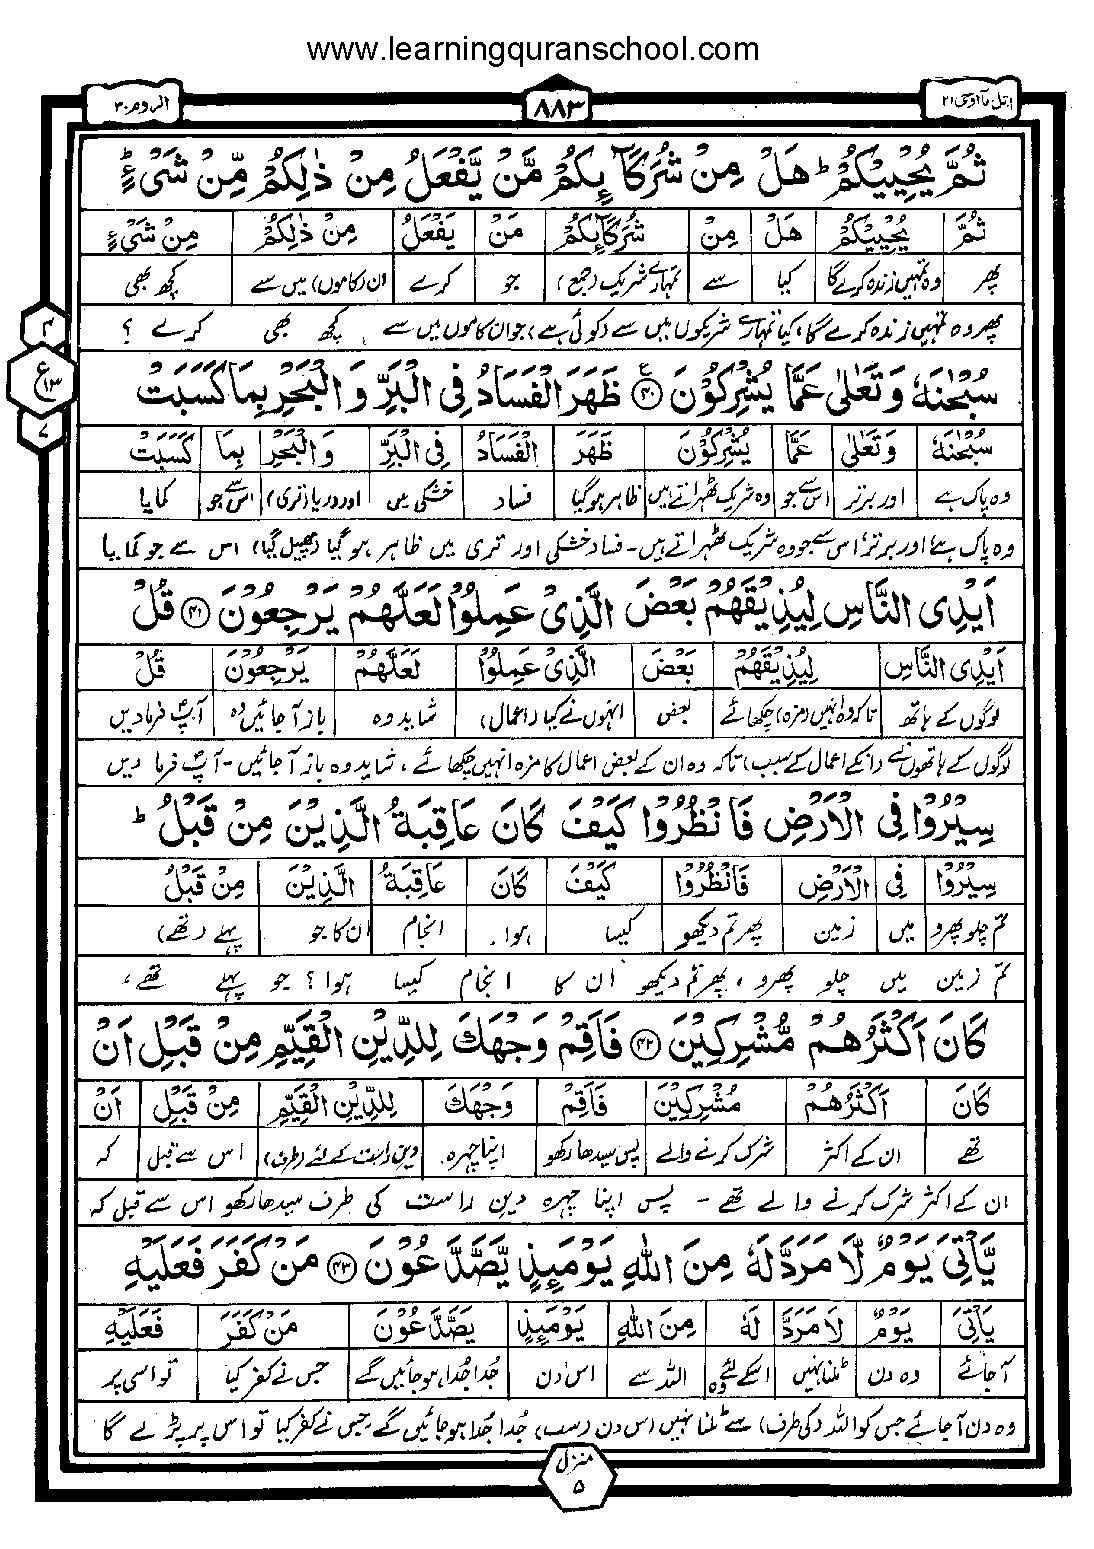 www.learningquranschool.com
اتل مآ اوحی ۲۱ ۸۸۳ الروم ۳۰
ثُمَّ یُحۡیِیۡکُمۡ ؕ هَلۡ مِنۡ شُرَکَآئِکُمۡ مَّنۡ یَّفۡعَلُ مِنۡ ذٰلِکُمۡ مِّنۡ شَیۡءٍ ؕ
ثُمَّ یُحۡیِیۡکُمۡ هَلۡ مِنۡ شُرَکَآئِکُمۡ مَنۡ یَفۡعَلُ مِنۡ ذٰلِکُمۡ مِنۡ شَیۡءٍ
پھر وہ تمہیں زندہ کرے گا کیا سے تمہارے شریک (جمع) جو کرے ان (کاموں) میں سے کچھ بھی
پھر وہ تمہیں زندہ کرے گا، کیا تمہارے شریکوں میں سے (کوئی ہے) جو ان کاموں میں سے کچھ بھی کرے ؟
۴
ع ۱۳
۷
سُبۡحٰنَهٗ وَتَعٰلٰی عَمَّا یُشۡرِکُوۡنَ ۴۰ ظَهَرَ الۡفَسَادُ فِی الۡبَرِّ وَ الۡبَحۡرِ بِمَا کَسَبَتۡ
سُبۡحٰنَهٗ وَتَعٰلٰی عَمَّا یُشۡرِکُوۡنَ ظَهَرَ الۡفَسَادُ فِی الۡبَرِّ وَ الۡبَحۡرِ بِمَا کَسَبَتۡ
وہ پاک ہے اور برتر اس سے جو وہ شریک ٹھہراتے ہیں ظاہر ہو گیا فساد خشکی میں اور دریا (تری) اس سے جو کمایا
وہ پاک ہے اور برتر اس سے جو وہ شریک ٹھہراتے ہیں۔ فساد خشکی اور تری میں ظاہر ہو گیا (پھیل گیا) اس سے جو کمایا
اَیۡدِی النَّاسِ لِیُذِیۡقَهُمۡ بَعۡضَ الَّذِیۡ عَمِلُوۡا لَعَلَّهُمۡ یَرۡجِعُوۡنَ ۴۱ قُلۡ
اَیۡدِی النَّاسِ لِیُذِیۡقَهُمۡ بَعۡضَ الَّذِیۡ عَمِلُوۡا لَعَلَّهُمۡ یَرۡجِعُوۡنَ قُلۡ
لوگوں کے ہاتھ تاکہ وہ انہیں (مزہ) چکھائے بعض انہوں نے کیا (اعمال) شاید وہ باز آجائیں وہ آپ فرمادیں
لوگوں کے ہاتھوں نے (ان کے اعمال کے سبب) تاکہ وہ ان کے بعض اعمال کا مزہ انہیں چکھائے، شاید وہ باز آجائیں۔ آپ فرما دیں
سِیۡرُوۡا فِی الۡاَرۡضِ فَانۡظُرُوۡا کَیۡفَ کَانَ عَاقِبَةُ الَّذِیۡنَ مِنۡ قَبۡلُ ؕ
سِیۡرُوۡا فِی الۡاَرۡضِ فَانۡظُرُوۡا کَیۡفَ کَانَ عَاقِبَةُ الَّذِیۡنَ مِنۡ قَبۡلُ
تم چلو پھرو میں زمین پھر تم دیکھو کیسا ہوا۔ انجام ان کا جو پہلے (تھے)
تم زمین میں چلو پھرو، پھر تم دیکھو ان کا انجام کیسا ہوا؟ جو پہلے تھے،
کَانَ اَکۡثَرُهُمۡ مُّشۡرِکِیۡنَ ۴۲ فَاَقِمۡ وَجۡهَکَ لِلدِّیۡنِ الۡقَیِّمِ مِنۡ قَبۡلِ اَنۡ
کَانَ اَکۡثَرُهُمۡ مُشۡرِکِیۡنَ فَاَقِمۡ وَجۡهَکَ لِلدِّیۡنِ الۡقَیِّمِ مِنۡ قَبۡلِ اَنۡ
تھے ان کے اکثر شرک کرنے والے پس سیدھا رکھو اپنا چہرہ دین راست کے لئے (طرف) اس سے قبل کہ
ان کے اکثر شرک کرنے والے تھے۔ پس اپنا چہرہ دین راست کی طرف سیدھا رکھو اس سے قبل کہ
یَّاۡتِیَ یَوۡمٌ لَّا مَرَدَّ لَهٗ مِنَ اللّٰهِ یَوۡمَئِذٍ یَّصَّدَّعُوۡنَ ۴۳ مَنۡ کَفَرَ فَعَلَیۡهِ
یَاۡتِیَ یَوۡمٌ لَا مَرَدَّ لَهٗ مِنَ اللّٰهِ یَوۡمَئِذٍ یَصَّدَّعُوۡنَ مَنۡ کَفَرَ فَعَلَیۡهِ
آجائے وہ دن ٹلنا نہیں اسکے لئے وہ اللہ سے اس دن جُدا جُدا ہو جائیں گے جس نے کفر کیا تو اسی پر
وہ دن آجائے جس کو اللہ (کی طرف) سے ٹلنا نہیں اس دن (سب) جُدا جُدا ہو جائیں گے جس نے کفر کیا تو اس پر پڑے گا
منزل ۵